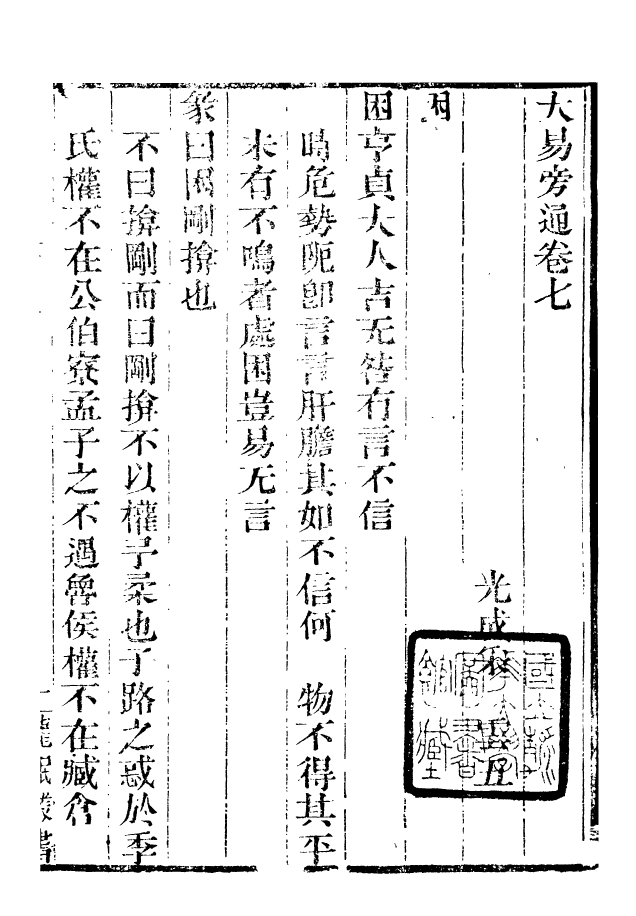 大易旁通卷七
光成
困
困亨貞大人吉无咎有言不信
時危勢阨卽言言肝膽其如不信何　物不得其平
未有不鳴者處困豈易无言
彖曰困剛揜也
不曰揜剛而曰剛揜不以權予柔也子路之惑於季
氏權不在公伯寮孟子之不遇魯侯權不在臧倉
龍眠叢書